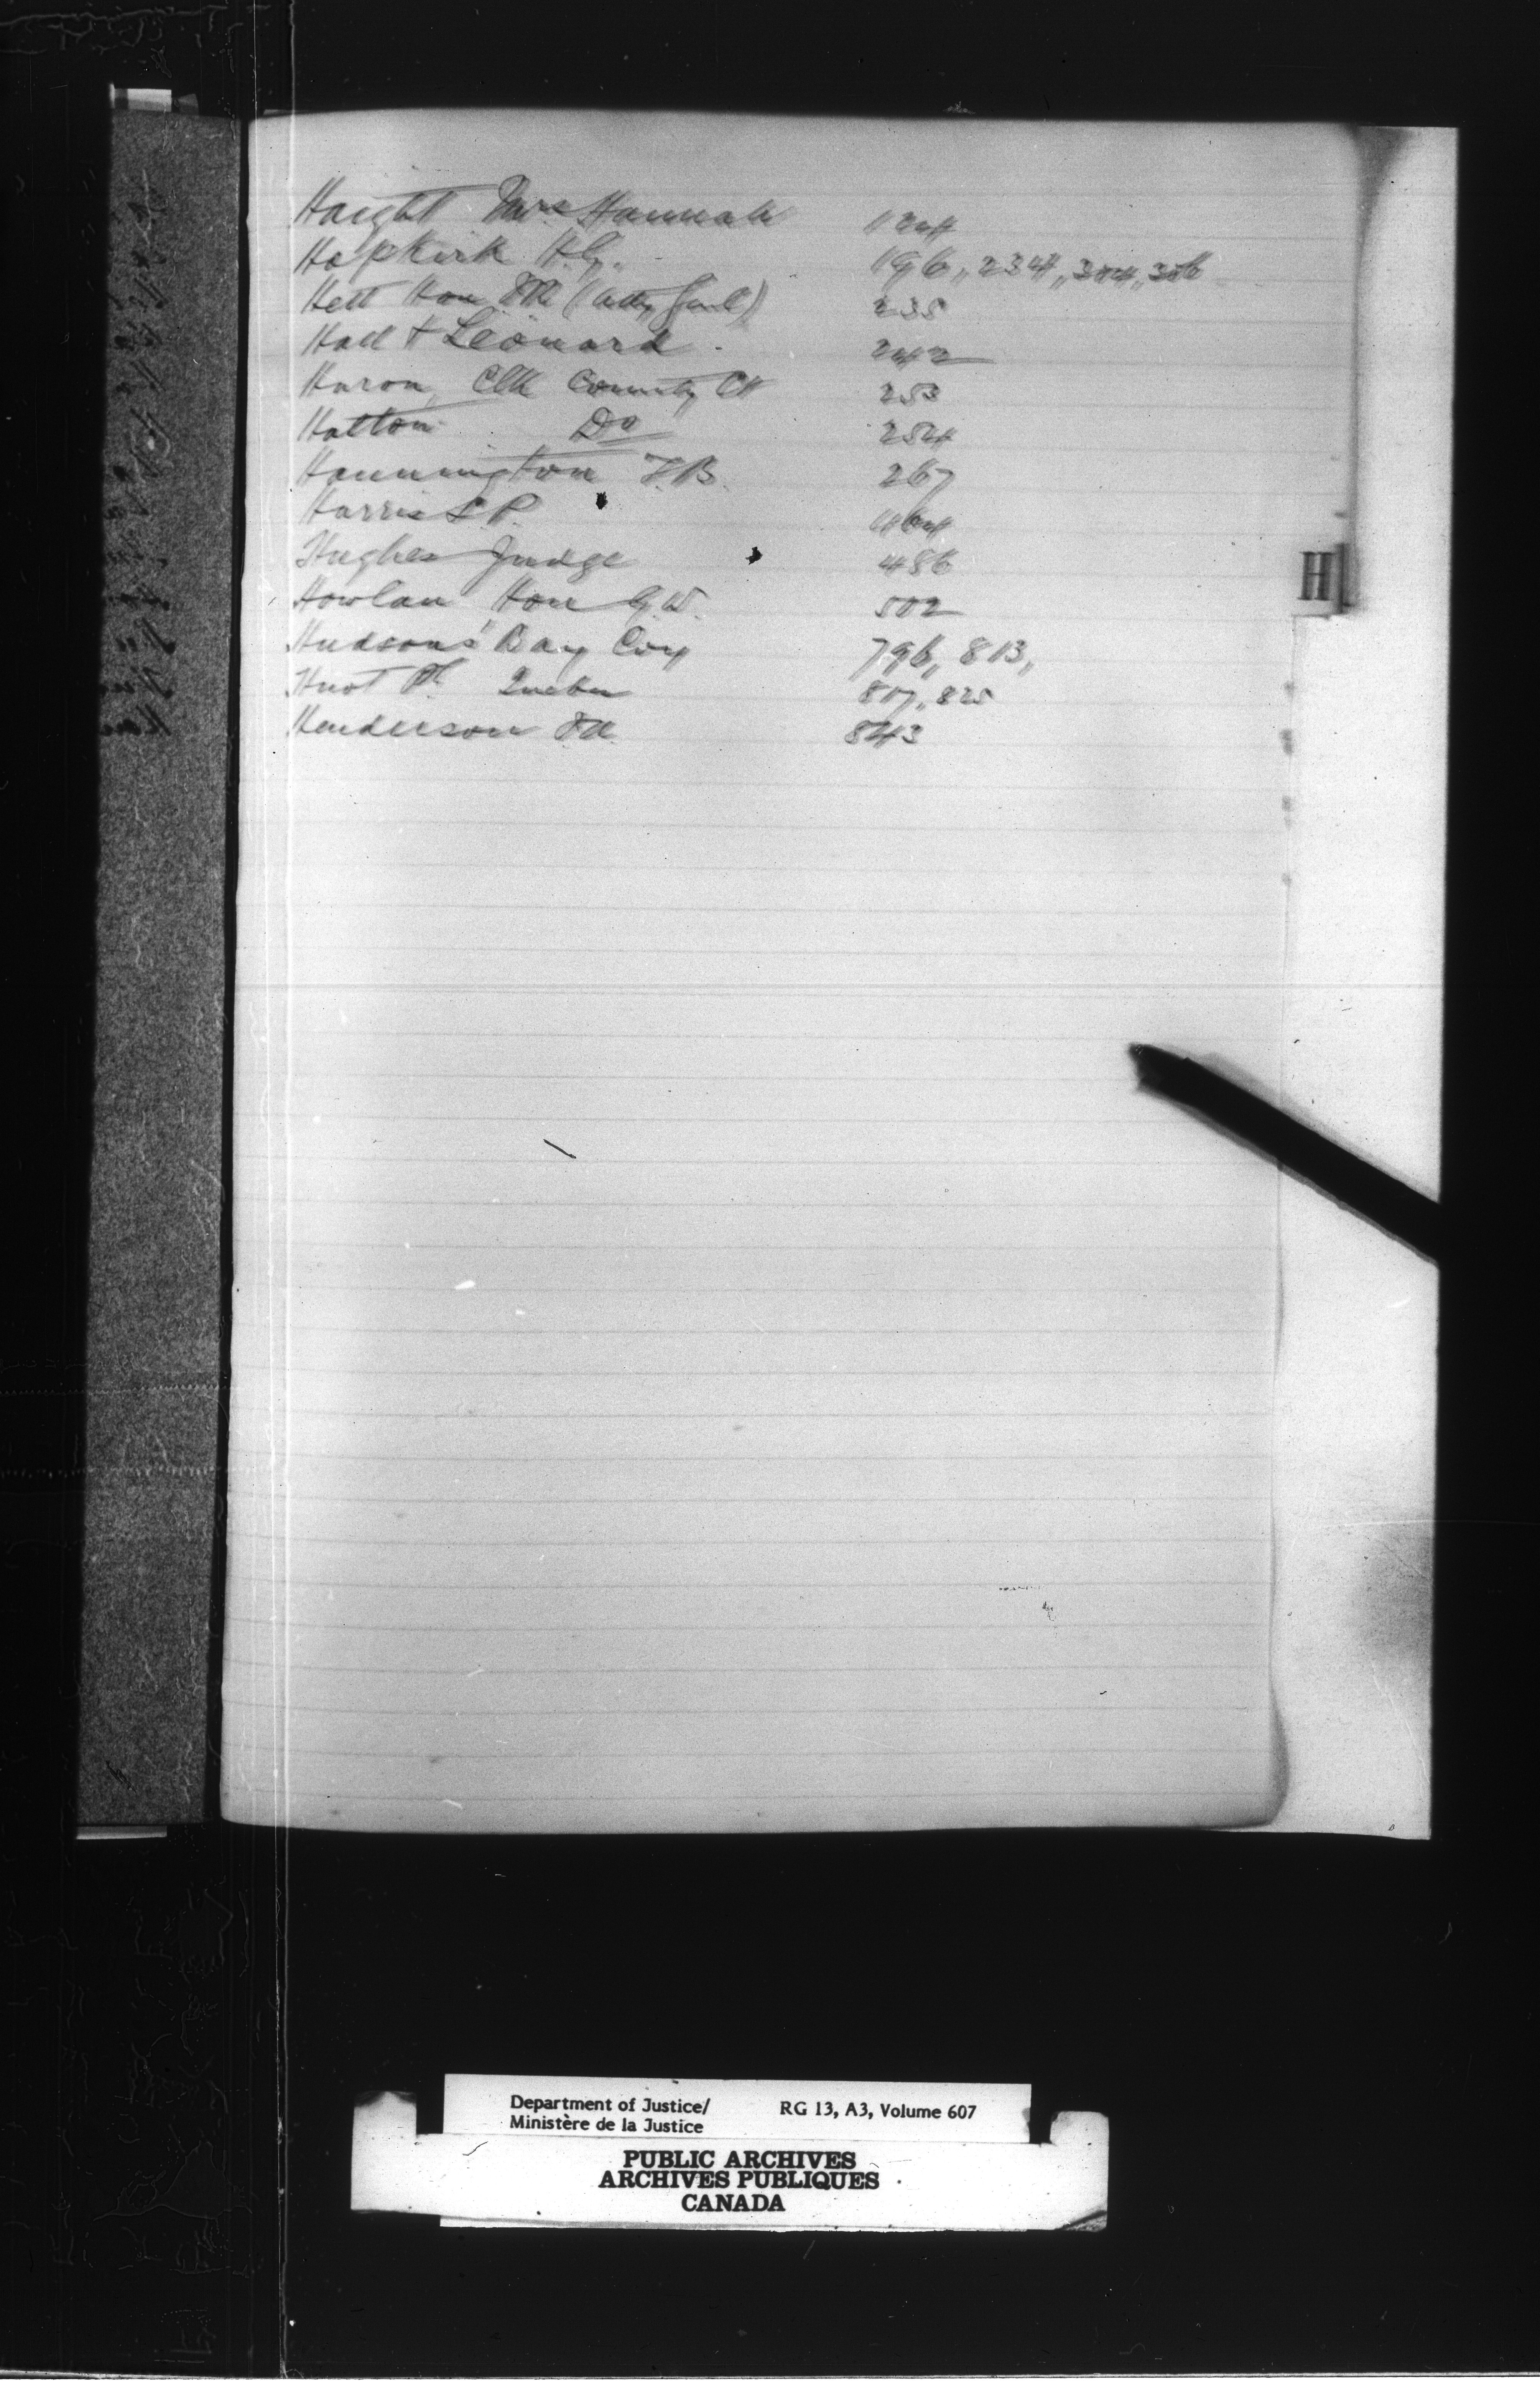 Haight Mrs Hannah 124
Hopkirk H.G. 196,, 234,, 304,, 306
Hett Hon FR (Atty Genl) 235
Hall & Leonard. 242
Huron, Clk County Ct 253
Halton Do 254
Hannington F.B. 267
Harris L P. 464
Hughes Judge 486
Howlan Hon G.W. 502
Hudsons' Bay Coy 796,, 813,
H
Huot Ph Quebec 817,, 825
Henderson 843
Department of Justice/ RG 13, A3, Volume 607
Ministère de la Justice
PUBLIC ARCHIVES
ARCHIVES PUBLIQUES
CANADA